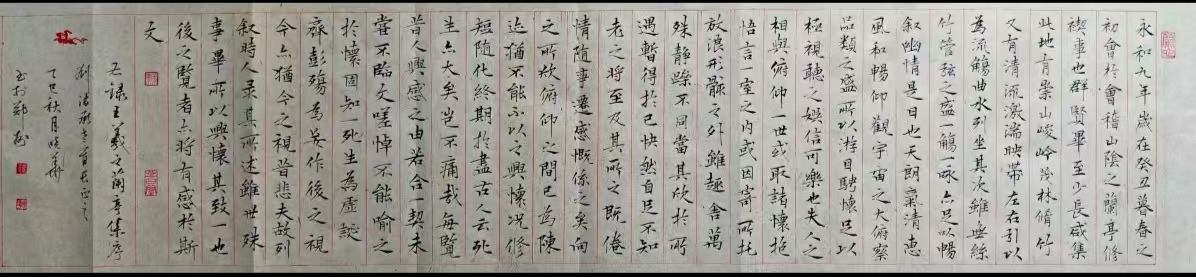 永和九年歲在癸丑暮春之
初會於會稽山陰之蘭亭修
禊事也群賢畢至少長咸集
此地有崇山峻岭茂林脩竹
又有清流激湍映帶左右引以
為流觴曲水列坐其次雖無絲
竹管弦之盛觴一詠亦足以暢
叙幽情是日也天朗氣清惠
風和暢仰觀宇宙之大俯察
品類之盛所以游目騁懷足以
極視聽之娛信可樂也夫人之
相與俯仰一世或取諸懷抱
悟言一室之内或因寄所托
放浪形骸之外雖趣舍萬
殊静躁不同當其欣於所
遇暫得於己快然自足不知
老之將至及其所之既倦
情隨事遷感慨係之矣向
之所欣俯仰之間已為陳
迹猶不能不以之興懷况修
短隨化終期於盡古人云死
生亦大矣豈不痛哉每覽
昔人興感之由若合一契未
嘗不臨文嗟悼不能喻之
於懷固知一死生為虛誕
齊彭殤為妄作後之視
今亦猶今之視昔悲夫故列
叙時人录其所述雖世殊
事異所以興懷其致一也
後之覽者亦將有感於斯
文
右録王羲之蘭亭集序
乙巳秋月